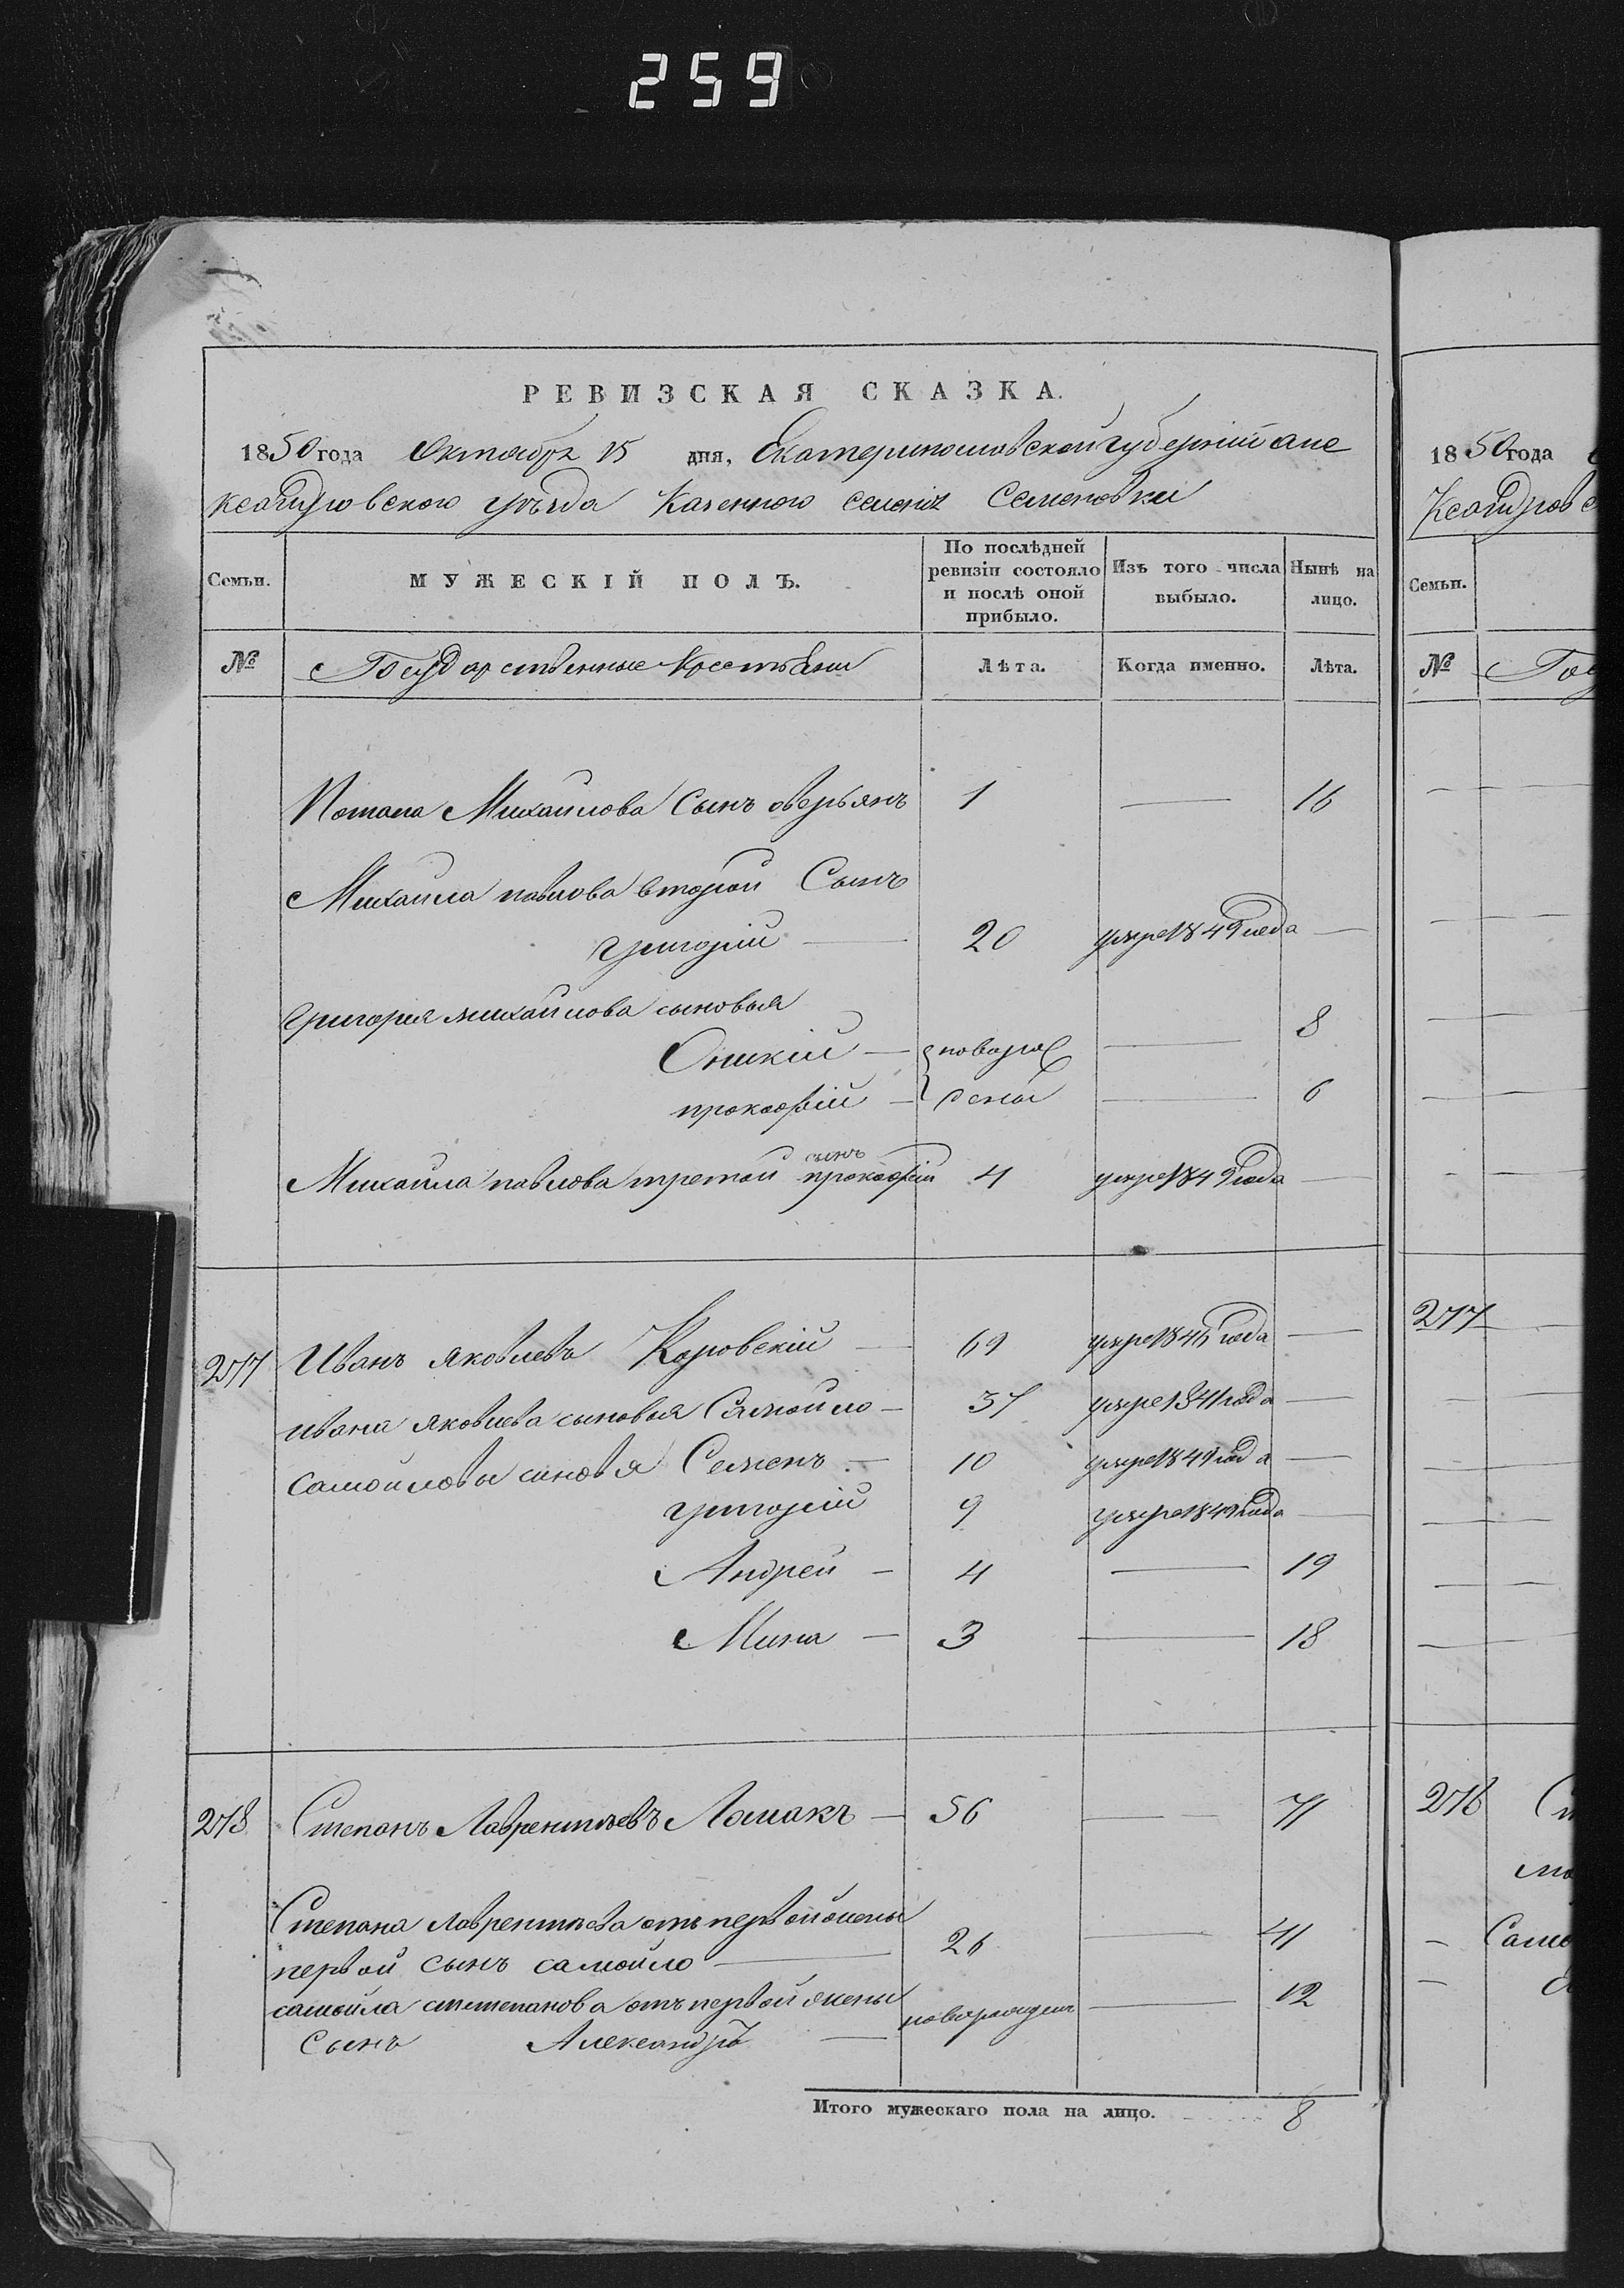 259
РЕВИЗСКАЯ СКАЗКА.
1850 года Октября 15 дня, Екатеринославской губерніи але
ксандровского уѣзда Казенного селенія Семеновки
Семьи.
МУЖЕСКІЙ ПОЛЪ.
По послѣдней ревизіи состояло и послѣ оной прибыло.
Изъ того числа выбыло.
Нынѣ на лицо.
№ Государственные Крестьяни Лѣта. Когда именно. Лѣта.
Потапа Михайлова Сынъ оверьянъ 1 — 16
Михайла павлова второй Сынъ
григорій — 20 умре 1849 года —
григория михайлова сыновья
Оникій — новорож — 8
прокофій — дены — 6
Михайла павлова третой сынъ прокофій 4 умре 1849 года —
277 Иванъ яковлевъ Коровскій — 69 умре 1845 года —
ивана яковлева сыновья Самойло — 37 умре 1841 года —
самойловы синовя Семенъ — 10 умре 1849 года —
григорій 9 умре 1849 года —
Андрей — 4 — 19
Мина — 3 — 18
278 Степанъ Лаврентьевъ Ломакъ — 56 — 71
Степана лаврентьева отъ первой жены
первой сынъ самойло — 26 — 41
самойла стетепанова отъ первой жены новорожден — 12
Сынъ Александръ —
Итого мужескаго пола на лицо. 8
1850 года
Ксандров
Семьи.
№ Го
277
278
Само